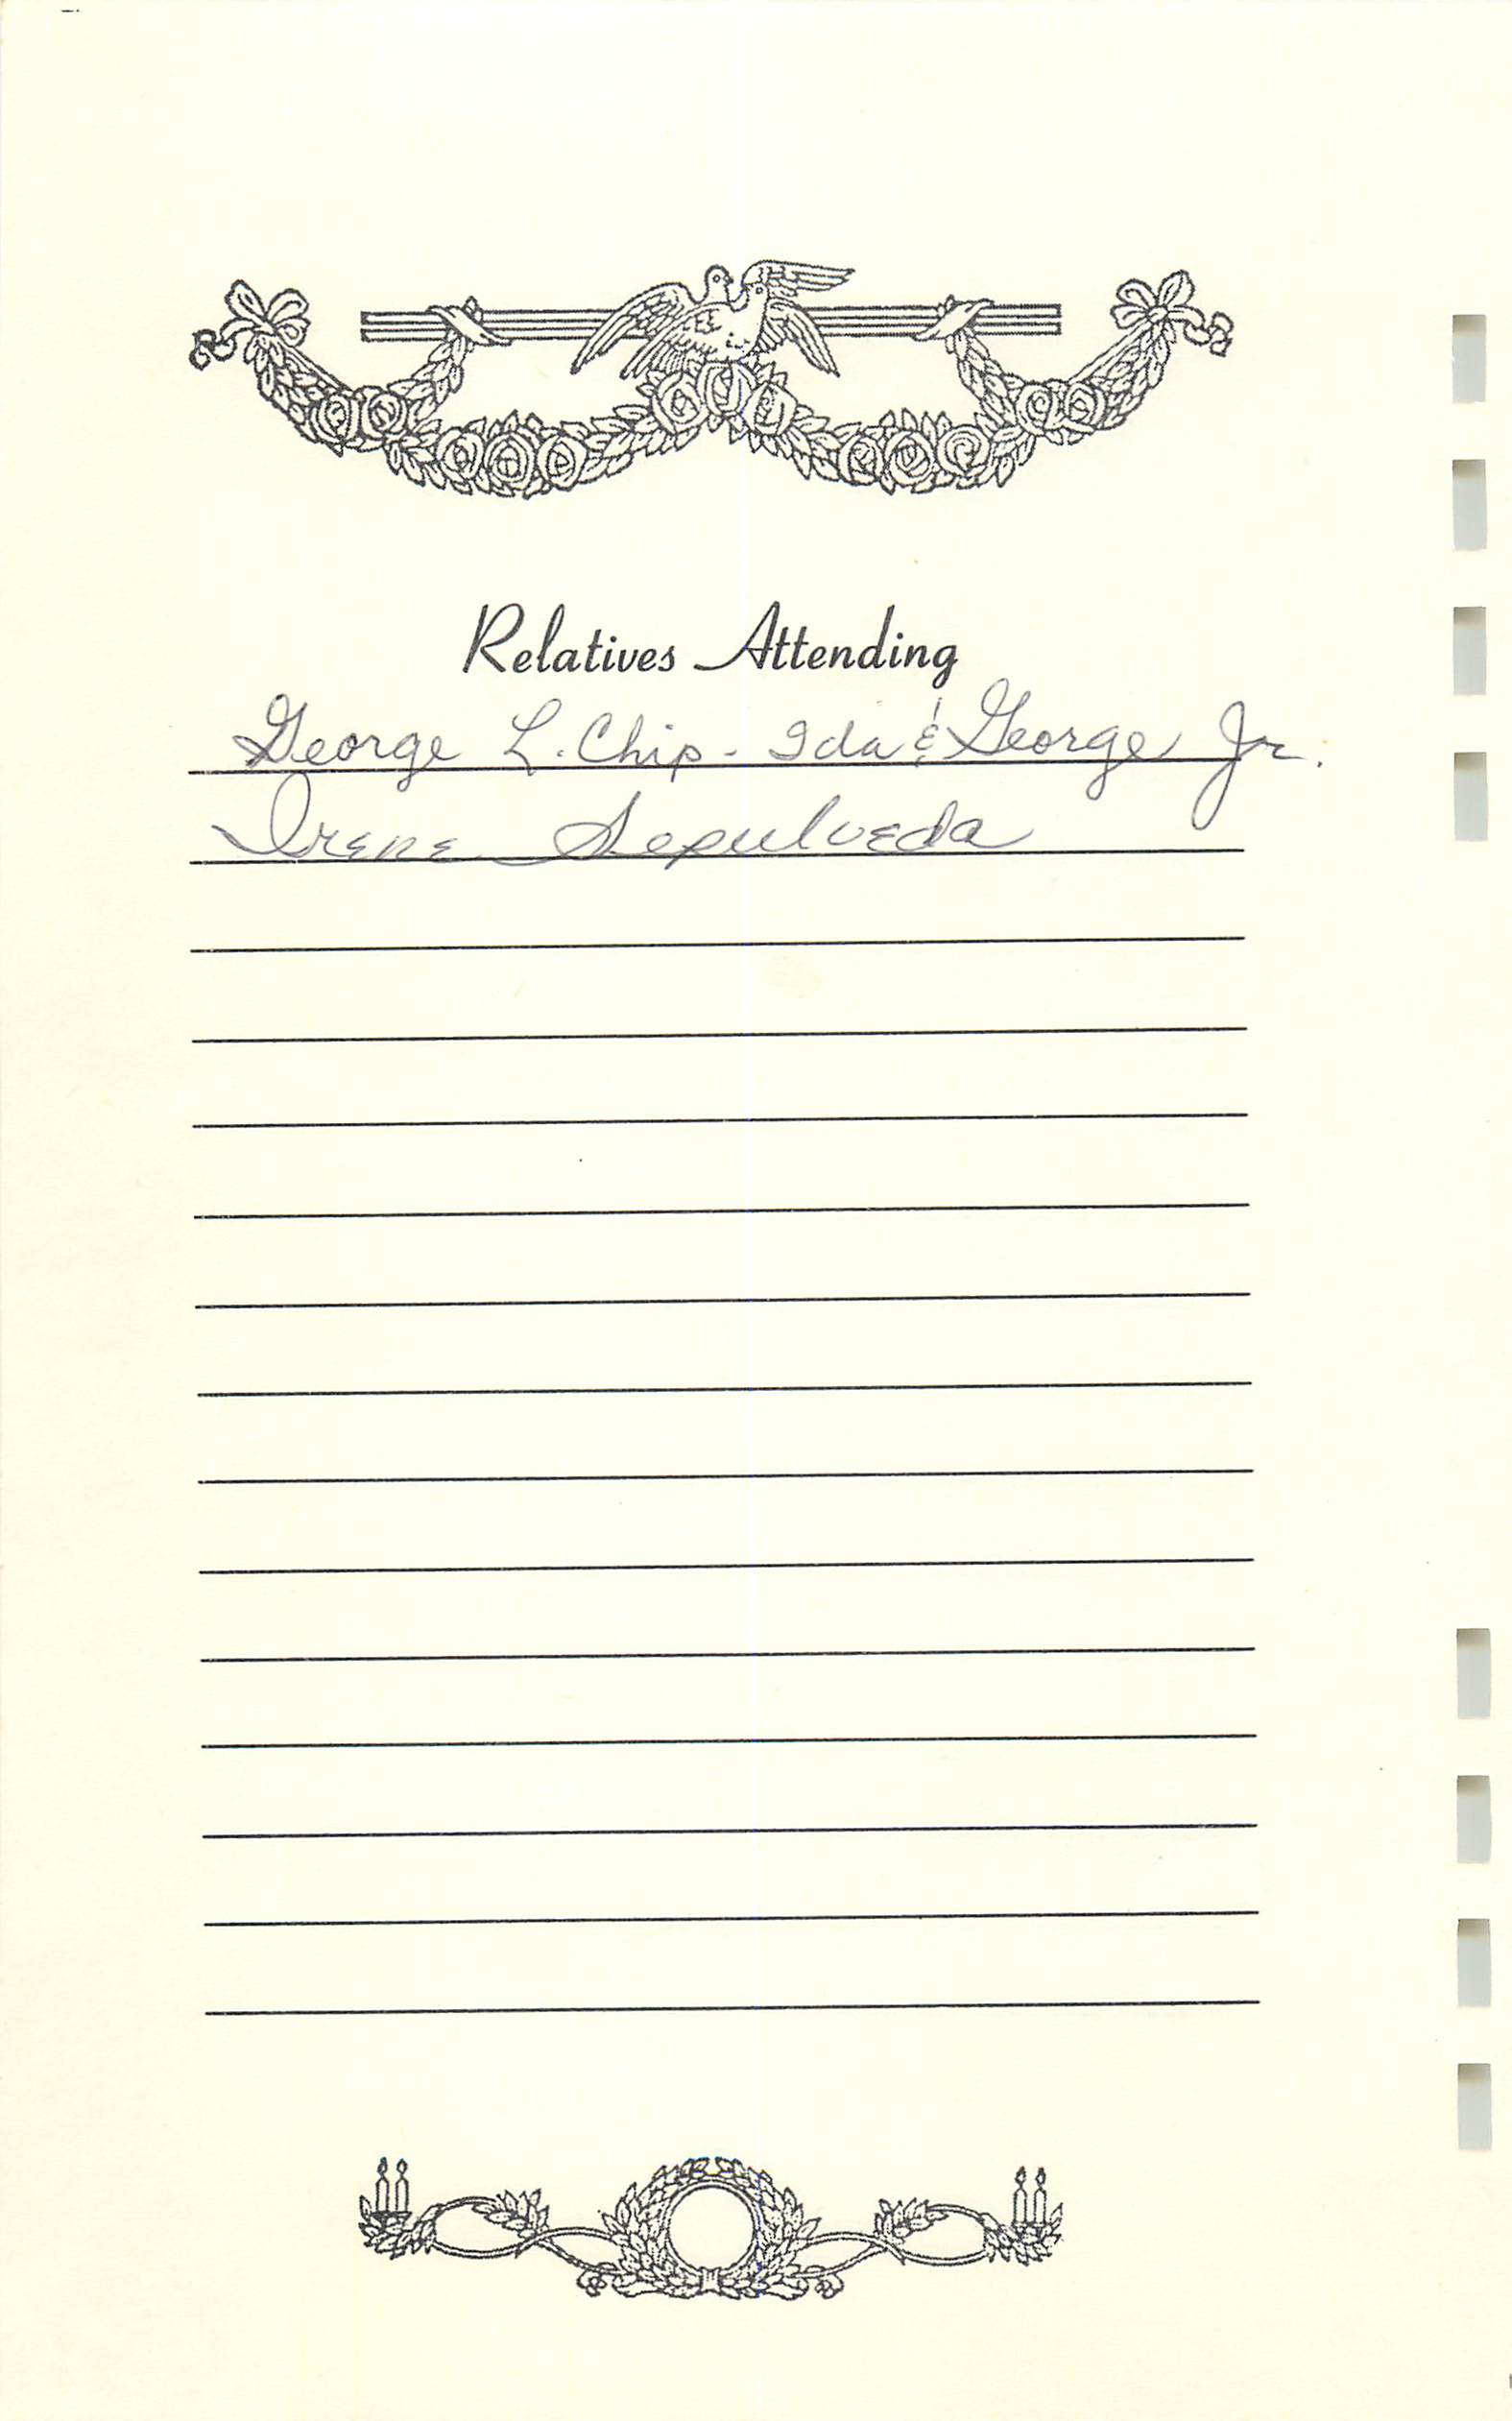 Relatives Attending
George L. Chip - Ida & George Jr.
Irene Sepulveda